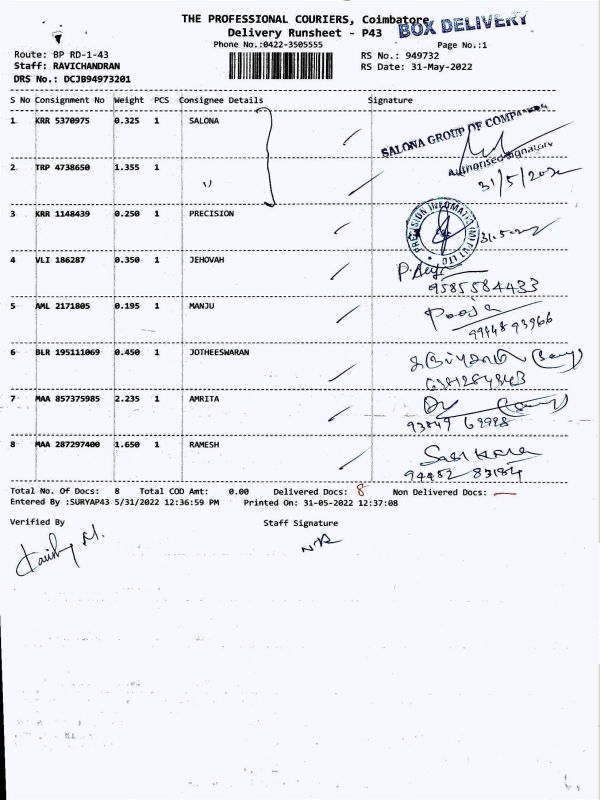 THE PROFESSIONAL COURIERS, Coimbatore
BOX DELIVERY
Delivery Runsheet - P43
Phone No.:0422-3505555
Page No.:1
Route: BP RD-1-43
RS No.: 949732
Staff: RAVICHANDRAN
RS Date: 31-May-2022
DRS No.: DCJB94973201
S No Consignment No Weight PCS Consignee Details Signature
1 KRR 5370975 0.325 1 SALONA
SALONA GROUP OF COMPANIES
Authorised Signatory
2 TRP 4738650 1.355 1 "
3 KRR 1148439 0.250 1 PRECISION
PRECISION INFOMATIC (M) PVT LTD
4 VLI 186287 0.350 1 JEHOVAH
9585584433
5 AML 2171805 0.195 1 MANJU
Pooja
9944893966
6 BLR 195111069 0.450 1 JOTHEESWARAN
7 MAA 857375985 2.235 1 AMRITA
8 MAA 287297400 1.650 1 RAMESH
Total No. Of Docs: 8 Total COD Amt: 0.00 Delivered Docs: 8 Non Delivered Docs: —
Entered By :SURYAP43 5/31/2022 12:36:59 PM Printed On: 31-05-2022 12:37:08
Verified By Staff Signature